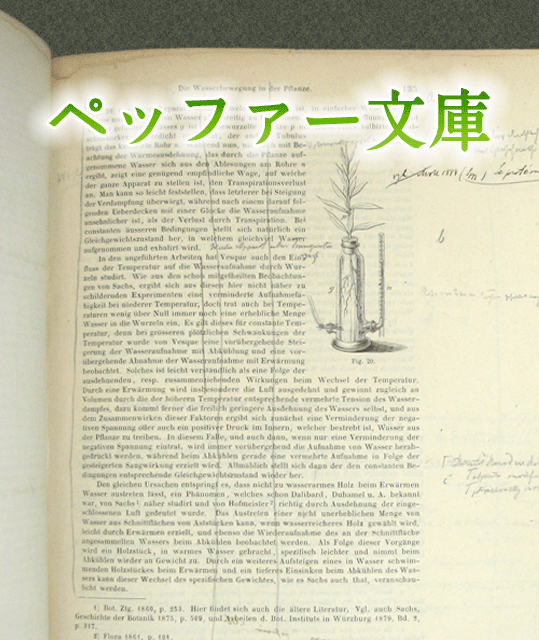 Die Wasserbewegung in der Pflanze. 135
ペッファー文庫
achtung der Wärmeausdehnung, das durch die Pflanze auf-
genommene Wasser sich aus den Ablesungen am Rohre n
ergibt, zeigt eine genügend empfindliche Wage, auf welche
der ganze Apparat zu stellen ist, den Transpirationsverlust
an. Man kann so leicht feststellen, dass letzterer bei Steigung
der Verdampfung überwiegt, während nach einem darauf fol-
genden Ueberdecken mit einer Glocke die Wasseraufnahme
ansehnlicher ist, als der Verlust durch Transpiration. Bei
constanten äusseren Bedingungen stellt sich natürlich ein
Gleichgewichtszustand her, in welchem gleichviel Wasser
aufgenommen und exhalirt wird.
In den angeführten Arbeiten hat Vesque auch den Ein-
fluss der Temperatur auf die Wasseraufnahme durch Wur-
zeln studirt. Wie aus den schon mitgetheilten Beobachtun-
gen von Sachs, ergibt sich aus diesen hier nicht näher zu
schildernden Experimenten eine verminderte Aufnahmefä-
higkeit bei niederer Temperatur, doch trat auch bei Tempe-
raturen wenig über Null immer noch eine erhebliche Menge
Wasser in die Wurzeln ein. Es gilt dieses für constante Tem-
peratur, denn bei grösseren plötzlichen Schwankungen der
Temperatur wurde von Vesque eine vorübergehende Stei-
gerung der Wasseraufnahme mit Abkühlung und eine vor-
übergehende Abnahme der Wasseraufnahme mit Erwärmung
beobachtet. Solches ist leicht verständlich als eine Folge der
Fig. 20.
ausdehnenden, resp. zusammenziehenden Wirkungen beim Wechsel der Temperatur.
Durch eine Erwärmung wird insbesondere die Luft ausgedehnt und gewinnt zugleich an
Volumen durch die der höheren Temperatur entsprechende vermehrte Tension des Wasser-
dampfes, dazu kommt ferner die freilich geringere Ausdehnung des Wassers selbst, und aus
dem Zusammenwirken dieser Faktoren ergibt sich zunächst eine Verminderung der nega-
tiven Spannung oder auch ein positiver Druck im Innern, welcher bestrebt ist, Wasser aus
der Pflanze zu treiben. In diesem Falle, und auch dann, wenn nur eine Verminderung der
negativen Spannung eintrat, wird immer vorübergehend die Aufnahme von Wasser herab-
gedrückt werden, während beim Abkühlen gerade eine vermehrte Aufnahme in Folge der
gesteigerten Saugwirkung erzielt wird. Allmählich stellt sich dann der den constanten Be-
dingungen entsprechende Gleichgewichtszustand wieder her.
Den gleichen Ursachen entspringt es, dass nicht zu wasserarmes Holz beim Erwärmen
Wasser austreten lässt, ein Phänomen, welches schon Dalibard, Duhamel u. A. bekannt
war, von Sachs¹) näher studirt und von Hofmeister²) richtig durch Ausdehnung der einge-
schlossenen Luft gedeutet wurde. Das Austreten einer nicht unerheblichen Menge von
Wasser aus Schnittflächen von Aststücken kann, wenn wasserreicheres Holz gewählt wird,
leicht durch Erwärmen erzielt, und ebenso die Wiederaufnahme des an der Schnittfläche
angesammelten Wassers beim Abkühlen beobachtet werden. Als Folge dieser Vorgänge
wird ein Holzstück, in warmes Wasser gebracht, spezifisch leichter und nimmt beim
Abkühlen wieder an Gewicht zu. Durch ein weiteres Aufsteigen eines in Wasser schwim-
menden Holzstückes beim Erwärmen und ein tieferes Einsinken beim Abkühlen des Was-
sers kann dieser Wechsel des spezifischen Gewichtes, wie es Sachs auch that, veranschau-
licht werden.
1) Bot. Ztg. 1860, p. 253. Hier findet sich auch die ältere Literatur. Vgl. auch Sachs,
Geschichte der Botanik 1875, p. 509, und Arbeiten d. Bot. Instituts in Würzburg 1879, Bd. 2,
p. 317.
2) Flora 1861, p. 104.